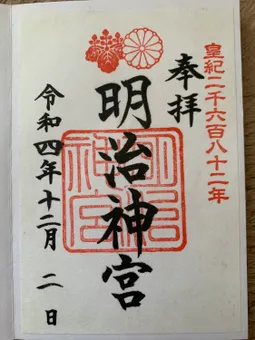 皇紀二千六百八十二年
奉拝
明治神宮
令和四年十二月二日
明治神宮